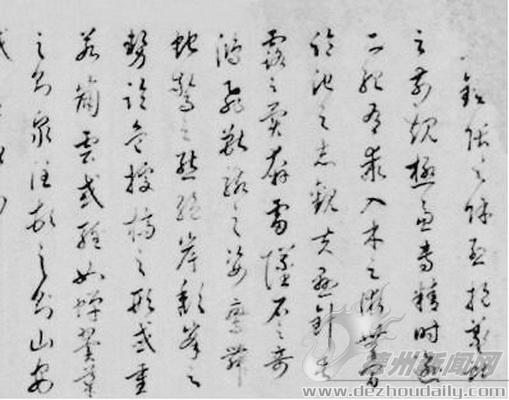 鍾張之餘烈挹羲獻
之前規極慮專精時逾
二紀有乖入木之術無間
臨池之志觀夫懸針垂
露之異奔雷墜石之奇
鴻飛獸駭之姿鸞舞
蛇驚之態絕岸頹峯之
勢臨危據槁之形或重
若崩雲或輕如蟬翼導
之則泉注頓之則山安
德州新闻网
www.dezhoudaily.com